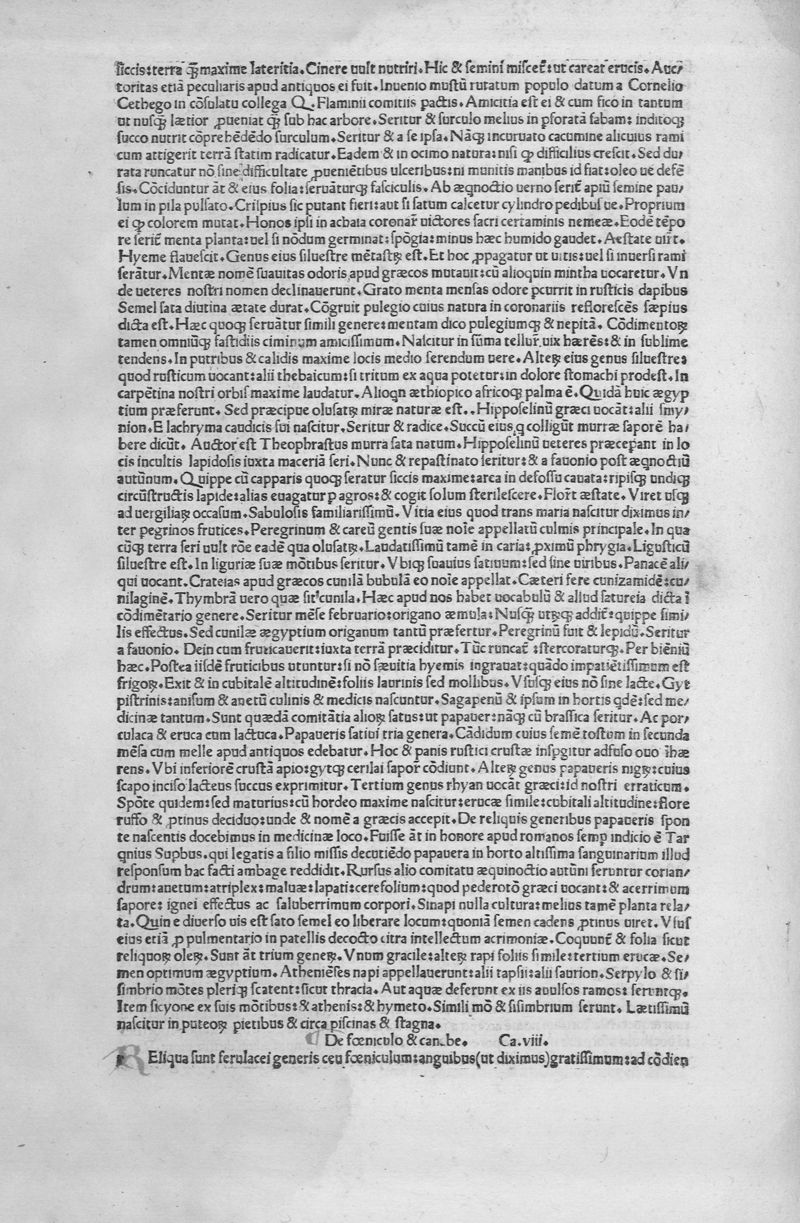 siccis:terra q̃ maxime lateritia. Cinere uult nutriri. Hic & semini miscet̃:ut careat erucis. Auc/
toritas etiã peculiaris apud antiquos ei fuit. Inuenio mustũ rutatum populo datum a Cornelio
Cethego in cõsulatu collega Q. Flaminii comitiis pactis. Amicitia est ei & cum fico in tantum
ut nusq̃ lætior ꝓueniat q̃ sub hac arbore. Seritur & surculo melius in pforata fabam: inditoq̃
succo nutrit cõprehẽdẽdo surculum. Seritur & a se ipsa. Nãq̃ incuruato cacumine alicuius rami
cum attigerit terrã statim radicatur. Eadem & in ocimo natura:nisi ꝙ difficilius crescit. Sed du/
rata runcatur nõ sine difficultate ꝓueniẽtibus ulceribus:ni munitis manibus id fiat:oleo ue defẽ
sis. Cõciduntur ãt & eius folia:seruãturq̃ fasciculis. Ab æqnoctio uerno serit̃ apiũ semine pau/
lum in pila pulsato. Crispius sic putant fieri:aut si satum calcetur cylindro pedibus ue. Proprium
ei ꝙ colorem mutat. Honos ipsi in achaia coronar̃ uictores sacri certaminis nemeæ. Eodẽ tẽpo
re serit̃ menta planta:uel si nõdum germinat:spõgia:minus hæc humido gaudet. Aestate uirt.
Hyeme flauescit. Genus eius siluestre mẽtastꝝ est. Et hoc ꝓpagatur ut uitis:uel si inuersi rami
serãtur. Mentæ nomẽ suauitas odoris apud græcos mutauit:cũ alioquin mintha uocaretur. Vn
de ueteres nostri nomen declinauerunt. Grato menta mensas odore pcurrit in rusticis dapibus
Semel sata diutina ætate durat. Cõgruit pulegio cuius natura in coronariis reflorescẽs sæpius
dicta est. Hæc quoq̃ seruãtur simili genere:mentam dico pulegiumq̃ & nepitã. Cõdimentoꝝ
tamen omniũq̃ fastidiis ciminum amicissimum. Nascitur in sũma tellur̃ uix hærẽs:& in sublime
tendens. In putribus & calidis maxime locis medio serendum uere. Alteꝝ eius genus siluestre:
quod rusticum uocant:alii thebaicum:si tritum ex aqua potetur:in dolore stomachi prodest. In
carpẽtina nostri orbis maxime laudatur. Alioqn æthiopico africoq̃ palma ẽ. Quidã huic ægyp
tium præferunt. Sed præcipue olusatꝝ miræ naturæ est. Hipposelinũ græci uocãt:alii smy/
nion. E lachryma caudicis sui nascitur. Seritur & radice. Succũ eius q colligũt murræ saporẽ ha/
bere dicũt. Auctor est Theophrastus murra sata natum. Hipposelinũ ueteres præceperant in lo
cis incultis lapidosis iuxta maceriã seri. Nunc & repastinato seritur:& a fauonio post æqnoctiũ
autũnum. Quippe cũ capparis quoq̃ seratur siccis maxime:area in defossu cauata:ripisq̃ undiq̃
circũstructis lapide:alias euagatur p agros:& cogit solum sterilescere. Flor̃t æstate. Viret usq̃
ad uergiliaꝝ occasum. Sabulosis familiarissimũ. Vitia eius quod trans maria nascitur diximus in/
ter pegrinos frutices. Peregrinum & careũ gentis suæ noĩe appellatũ culinis principale. In qua
cũq̃ terra seri uult rõe eadẽ qua olusatꝝ. Laudatissimũ tamẽ in caria:ꝓximũ phrygia. Ligusticũ
siluestre est. In liguriæ suæ mõtibus seritur. Vbiq̃ suauius satiuum:sed sine uiribus. Panacẽ ali/
qui uocant. Crateias apud græcos cunilã bubulã eo noĩe appellat. Cæteri fere cunizamidẽ:cu/
nilaginẽ. Thymbrã uero quæ sit cunila. Hæc apud nos habet uocabulũ & aliud satureia dicta ĩ
cõdimẽtario genere. Seritur mẽse februario:origano æmula: Nusq̃ utꝝq̃ addit̃: quippe simi/
lis effectus. Sed cunilæ ægyptium origanum tantũ præfertur. Peregrinũ fuit & lepidũ. Seritur
a fauonio. Dein cum fruticauerit:iuxta terrã præciditur. Tũc runcat̃ :stercoraturq̃. Per biẽniũ
hæc. Postea iisdẽ fruticibus utuntur:si nõ sæuitia hyemis ingrauat:quãdo impatiẽtissimum est
frigoꝝ. Exit & in cubitalẽ altitudinẽ:foliis laurinis sed mollibus. Vsusq̃ eius nõ sine lacte. Gyt
pistrinis:anisum & anetũ culinis & medicis nascuntur. Sagapenũ & ipsum in hortis qdẽ:sed me/
dicinæ tantum. Sunt quædã comitãtia alioꝝ satus:ut papauer:nãq̃ cũ brassica seritur. Ac por/
culaca & eruca cum lactuca. Papaueris satiui tria genera. Cãdidum cuius semẽ tostum in secunda
mẽsa cum melle apud antiquos edebatur. Hoc & panis rustici crustæ inspgitur adfuso ouo ĩhæ
rens. Vbi inferiorẽ crustã apio:gytq̃ cerilai sapor̃ cõdiunt. Alteꝝ genus papaueris nigꝝ:cuius
scapo inciso lacteus succus exprimitur. Tertium genus rhyan uocãt græci:id nostri erraticum.
Spõte quidem:sed maturius:cũ hordeo maxime nascitur:erucæ simile:cubitali altitudine:flore
ruffo & ꝓtinus deciduo:unde & nomẽ a græcis accepit. De reliquis generibus papaueris spon
te nascentis docebimus in medicinæ loco. Fuisse ãt in honore apud romanos semp indicio ẽ Tar
qnius Supbus. qui legatis a filio missis decutiẽdo papauera in horto altissima sanguinarium illud
responsum hac facti ambage reddidit. Rursus alio comitatu æquinoctio autũni seruntur corian/
drum:anetum:atriplex:maluæ:lapati:cerefolium:quod pederotõ græci uocant:& acerrimum
sapore: ignei effectus ac saluberrimum corpori. Sinapi nulla cultura:melius tamẽ planta rela/
ta. Quin e diuerso uis est sato semel eo liberare locum:quoniã semen cadens ꝓtinus uiret. Vsus
eius etiã ꝓ pulmentario in patellis decocto citra intellectum acrimoniæ. Coqunt̃ & folia sicut
reliquoꝝ oleꝝ. Sunt ãt trium geneꝝ. Vnum gracile:alteꝝ rapi foliis simile:tertium erucæ. Se/
men optimum ægyptium. Atheniẽses napi appellauerunt:alii tapsi:alii saurion. Serpylo & si/
simbrio mõtes pleriq̃ scatent:sicut thracia. Aut aquæ deferunt ex iis auulsos ramos: seruntq̃.
Item sicyone ex suis mõtibus:& athenis:& hymeto. Simili mõ & sisimbrium serunt. Lætissimũ
nascitur in puteoꝝ pietibus & circa piscinas & stagna.
De fœniculo & canabe. Ca.viii.
REliqua sunt ferulacei generis ceu fœniculum:anguibus(ut diximus)gratissimum:ad cõdien